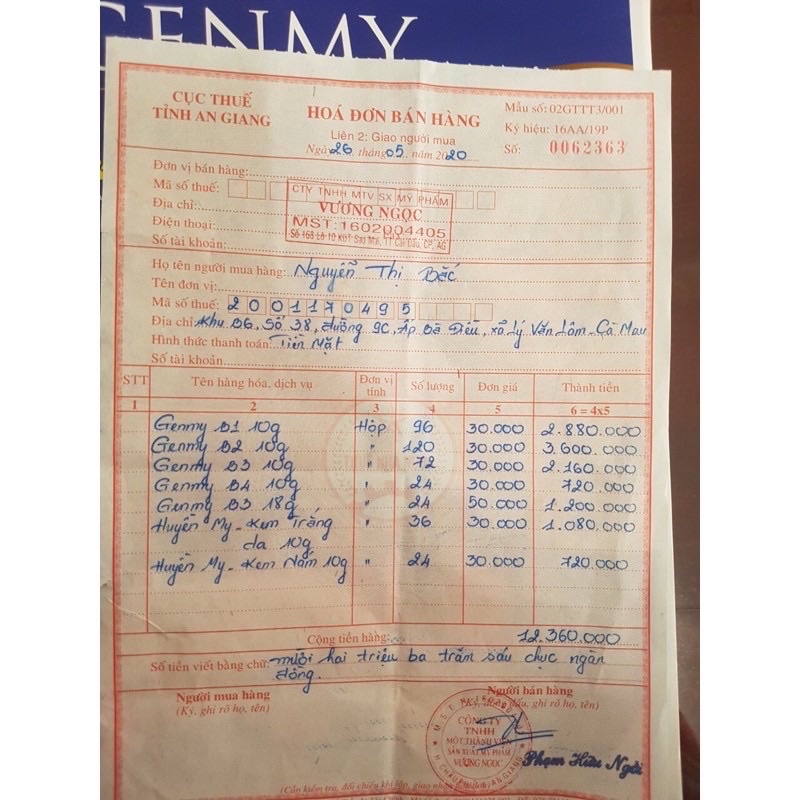 GENMY
CỤC THUẾ
TỈNH AN GIANG
HOÁ ĐƠN BÁN HÀNG
Liên 2: Giao người mua
Ngày 26 tháng 05 năm 2020
Mẫu số: 02GTTT3/001
Ký hiệu: 16AA/19P
Số: 0062363
Đơn vị bán hàng:
Mã số thuế:
Địa chỉ:
Điện thoại:
Số tài khoản:
CTY TNHH MTV SX MỸ PHẨM
VƯƠNG NGỌC
MST: 1602004405
Số 168 Lô 10 KDT Sao Mai, TT Cái Dầu, CP, AG
Họ tên người mua hàng: Nguyễn Thị Bắc
Tên đơn vị:
Mã số thuế: 2001170495
Địa chỉ: Khu D6, Số 38, đường 9C, Ấp Bà Điều, xã Lý Văn Lâm - Cà Mau
Hình thức thanh toán: Tiền Mặt
Số tài khoản
STT Tên hàng hóa, dịch vụ Đơn vị tính Số lượng Đơn giá Thành tiền
1 2 3 4 5 6 = 4x5
Genmy B1 10g Hộp 96 30.000 2.880.000
Genmy B2 10g " 120 30.000 3.600.000
Genmy B3 10g " 72 30.000 2.160.000
Genmy B4 10g " 24 30.000 720.000
Genmy B3 18g " 24 50.000 1.200.000
Huyền My - Kem Trắng " 36 30.000 1.080.000
da 10g
Huyền My - Kem Nám 10g " 24 30.000 720.000
Cộng tiền hàng: 12.360.000
Số tiền viết bằng chữ: mười hai triệu ba trăm sáu chục ngàn
đồng.
Người mua hàng
(Ký, ghi rõ họ, tên)
Người bán hàng
(Ký, đóng dấu, ghi rõ họ, tên)
CÔNG TY
TNHH
MỘT THÀNH VIÊN
SẢN XUẤT MỸ PHẨM
VƯƠNG NGỌC
Phạm Hữu Ngãi
(Cần kiểm tra, đối chiếu khi lập, giao nhận hóa đơn)